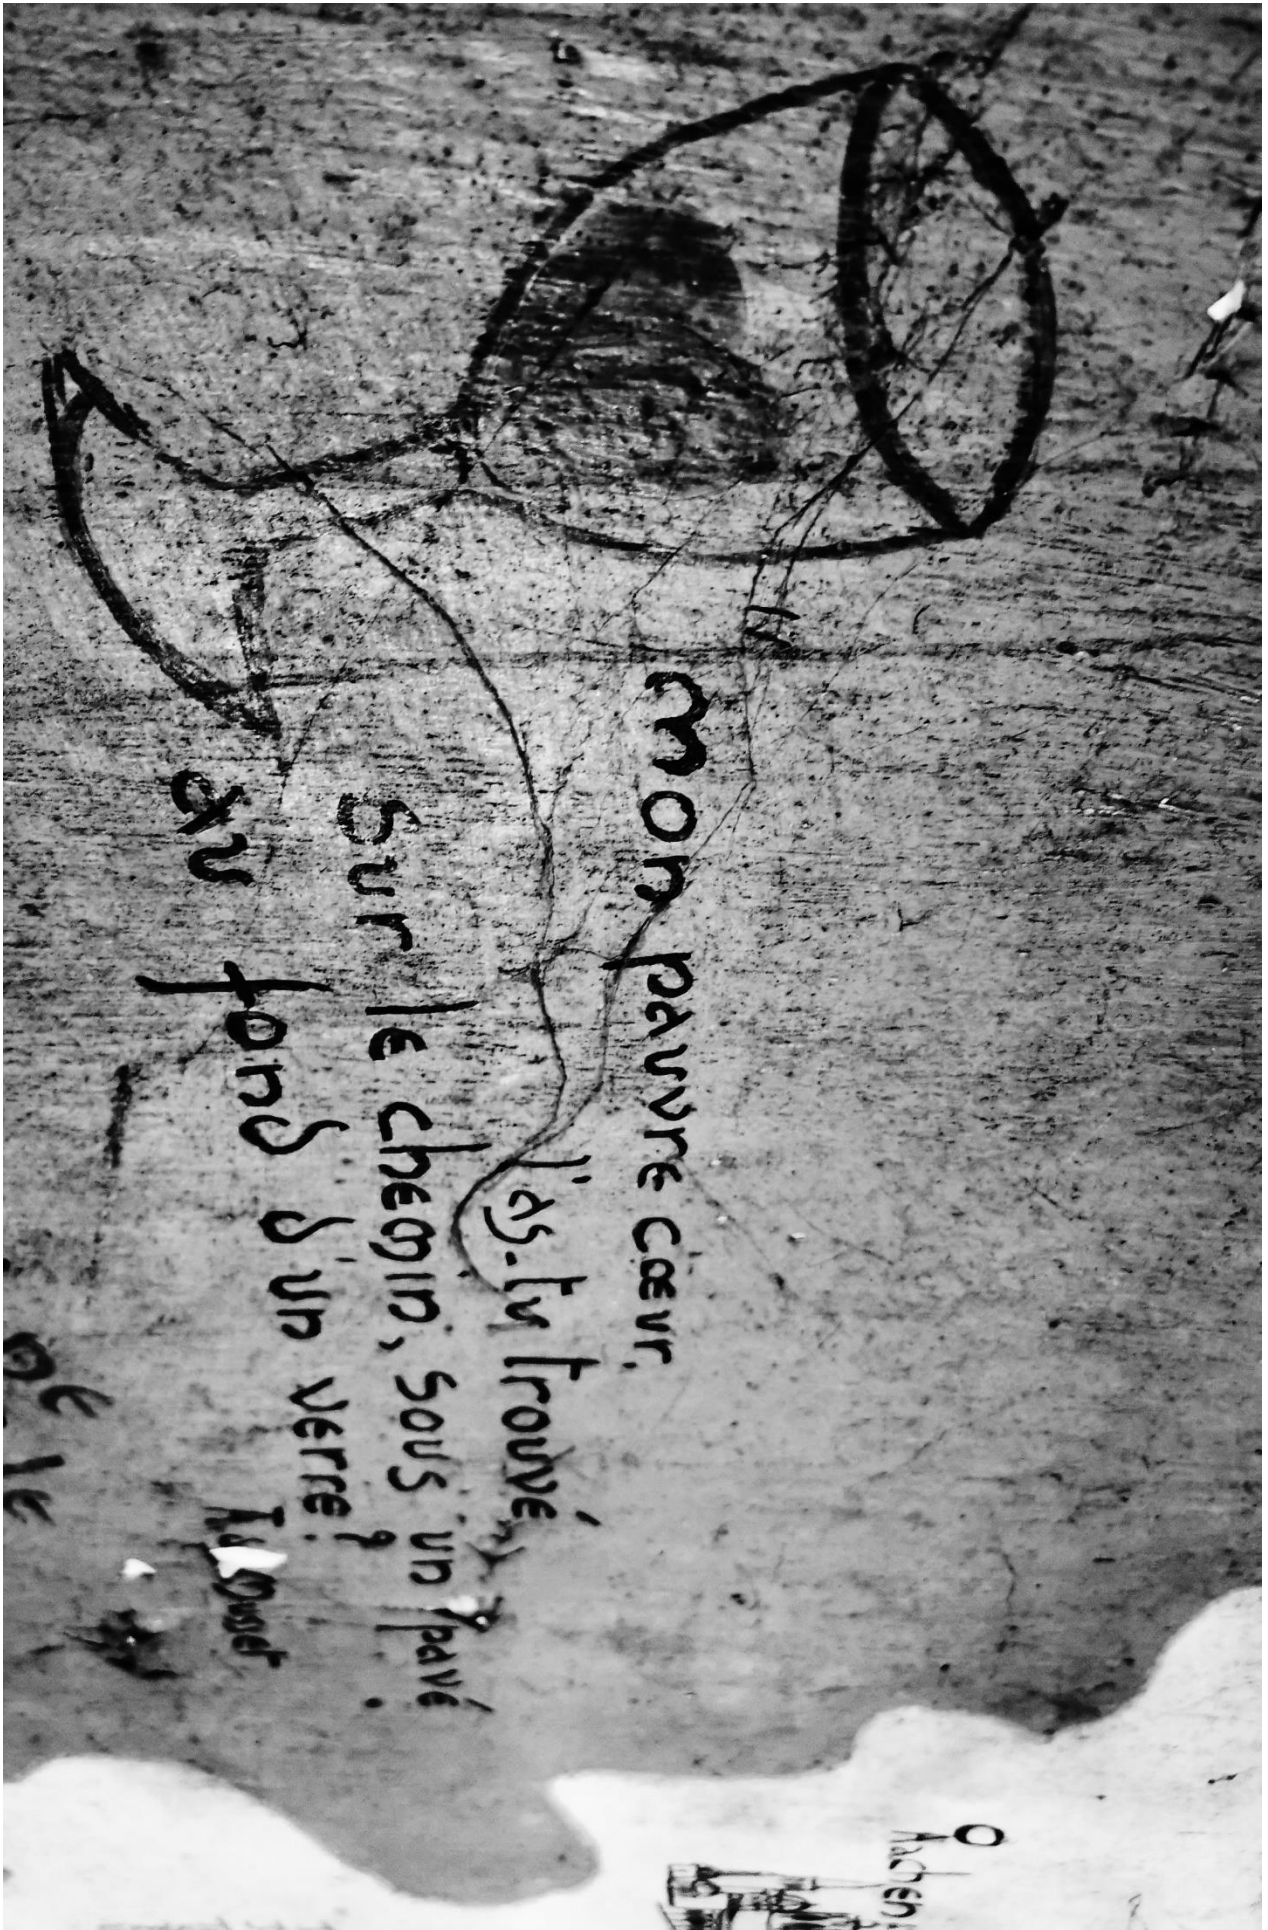 " mon pauvre cœur,
l'as-tu trouvé
Sur le chemin, Sous un pavé
au fond d'un verre?
Musset
de
le
Aachen